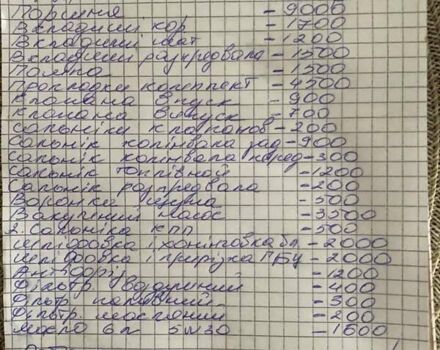 Поршня - 9000
Вкладиші кор - 1700
Вкладиші шат - 1200
Вкладиші розпредвала - 1500
Помпа - 1500
Прокладки комплект - 4500
Клапана Впуск - 900
Клапана Випуск - 700
Сальніки клапанов - 200
Сальнік колінвала зад - 900
Сальнік колінвала перед - 300
Сальнік топлівной - 1200
Сальнік розпредвала - 200
Воронка - 500
Вакумний насос - 3500
2. Сальніка КПП - 500
Шліфовка і хонінговка бл. - 2000
Шліфовка і прирізка ГБЦ - 2000
Антифріз - 1200
Фільтр воздушний - 400
Фільтр паливний - 300
Фільтр масляний - 200
Масло 6л 5w30 - 1600